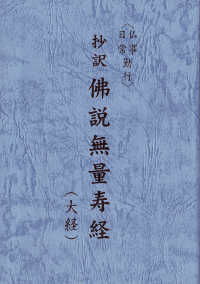 〈仏事
日常勤行〉
抄訳 佛説無量寿経
（大経）